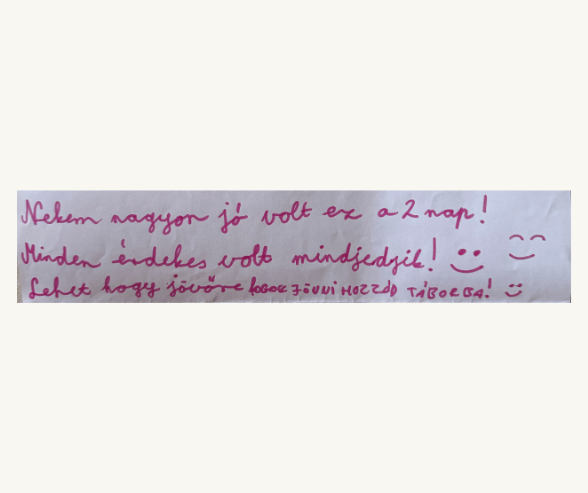 Nekem nagyon jó volt ez a 2 nap!
Minden érdekes volt mindjedjik!
Lehet hogy jövőre FOGOK JÖVNI HOZZÁD TÁBORBA!